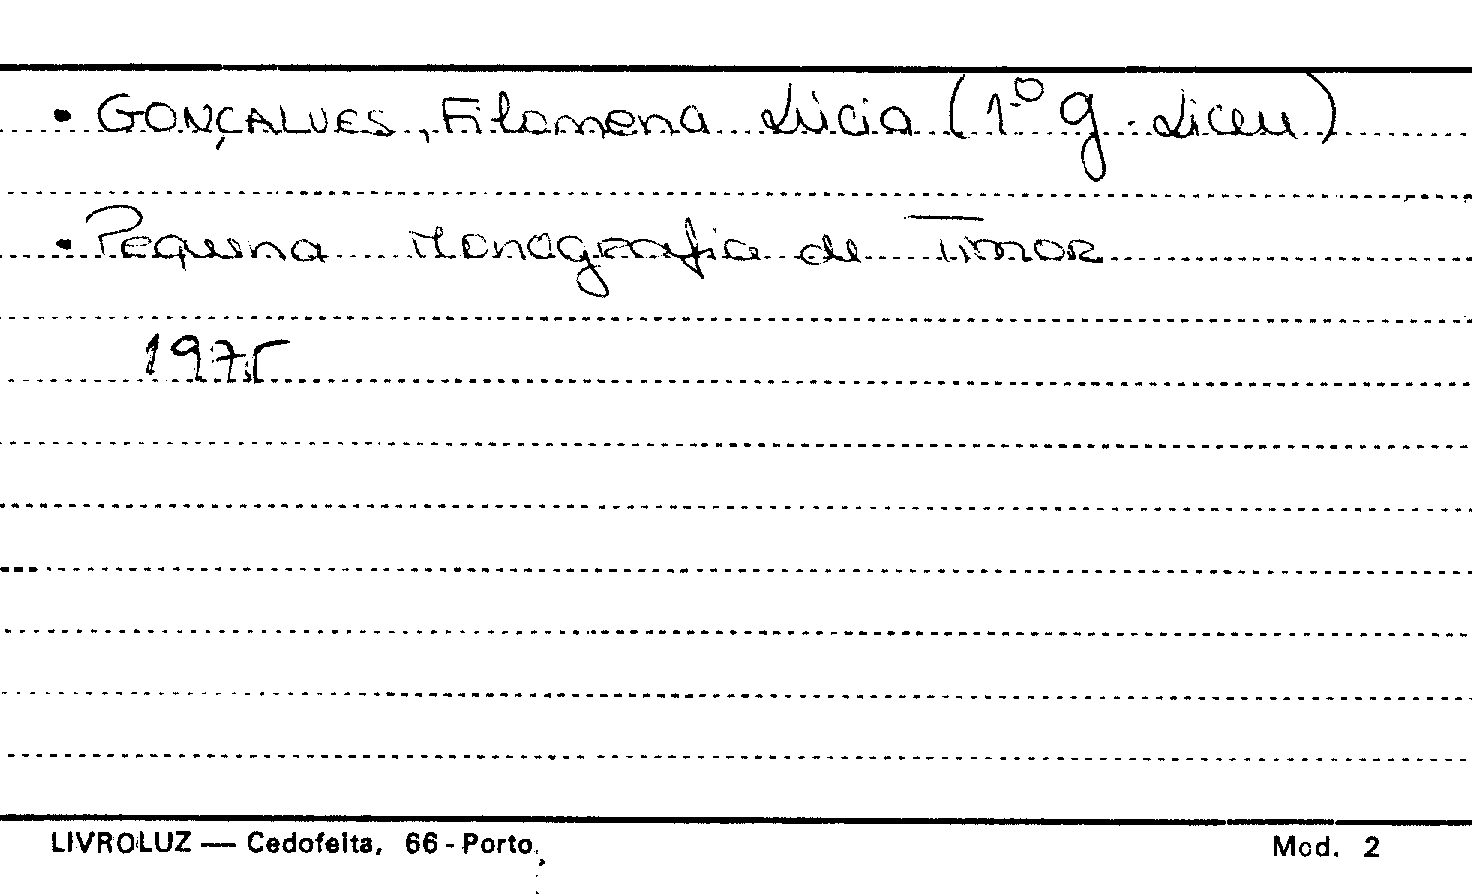 • GONÇALVES, Filomena Lúcia (1º g. Liceu)
• Pequena Monografia de Timor
1975
LIVROLUZ — Cedofeita, 66 - Porto
Mod. 2